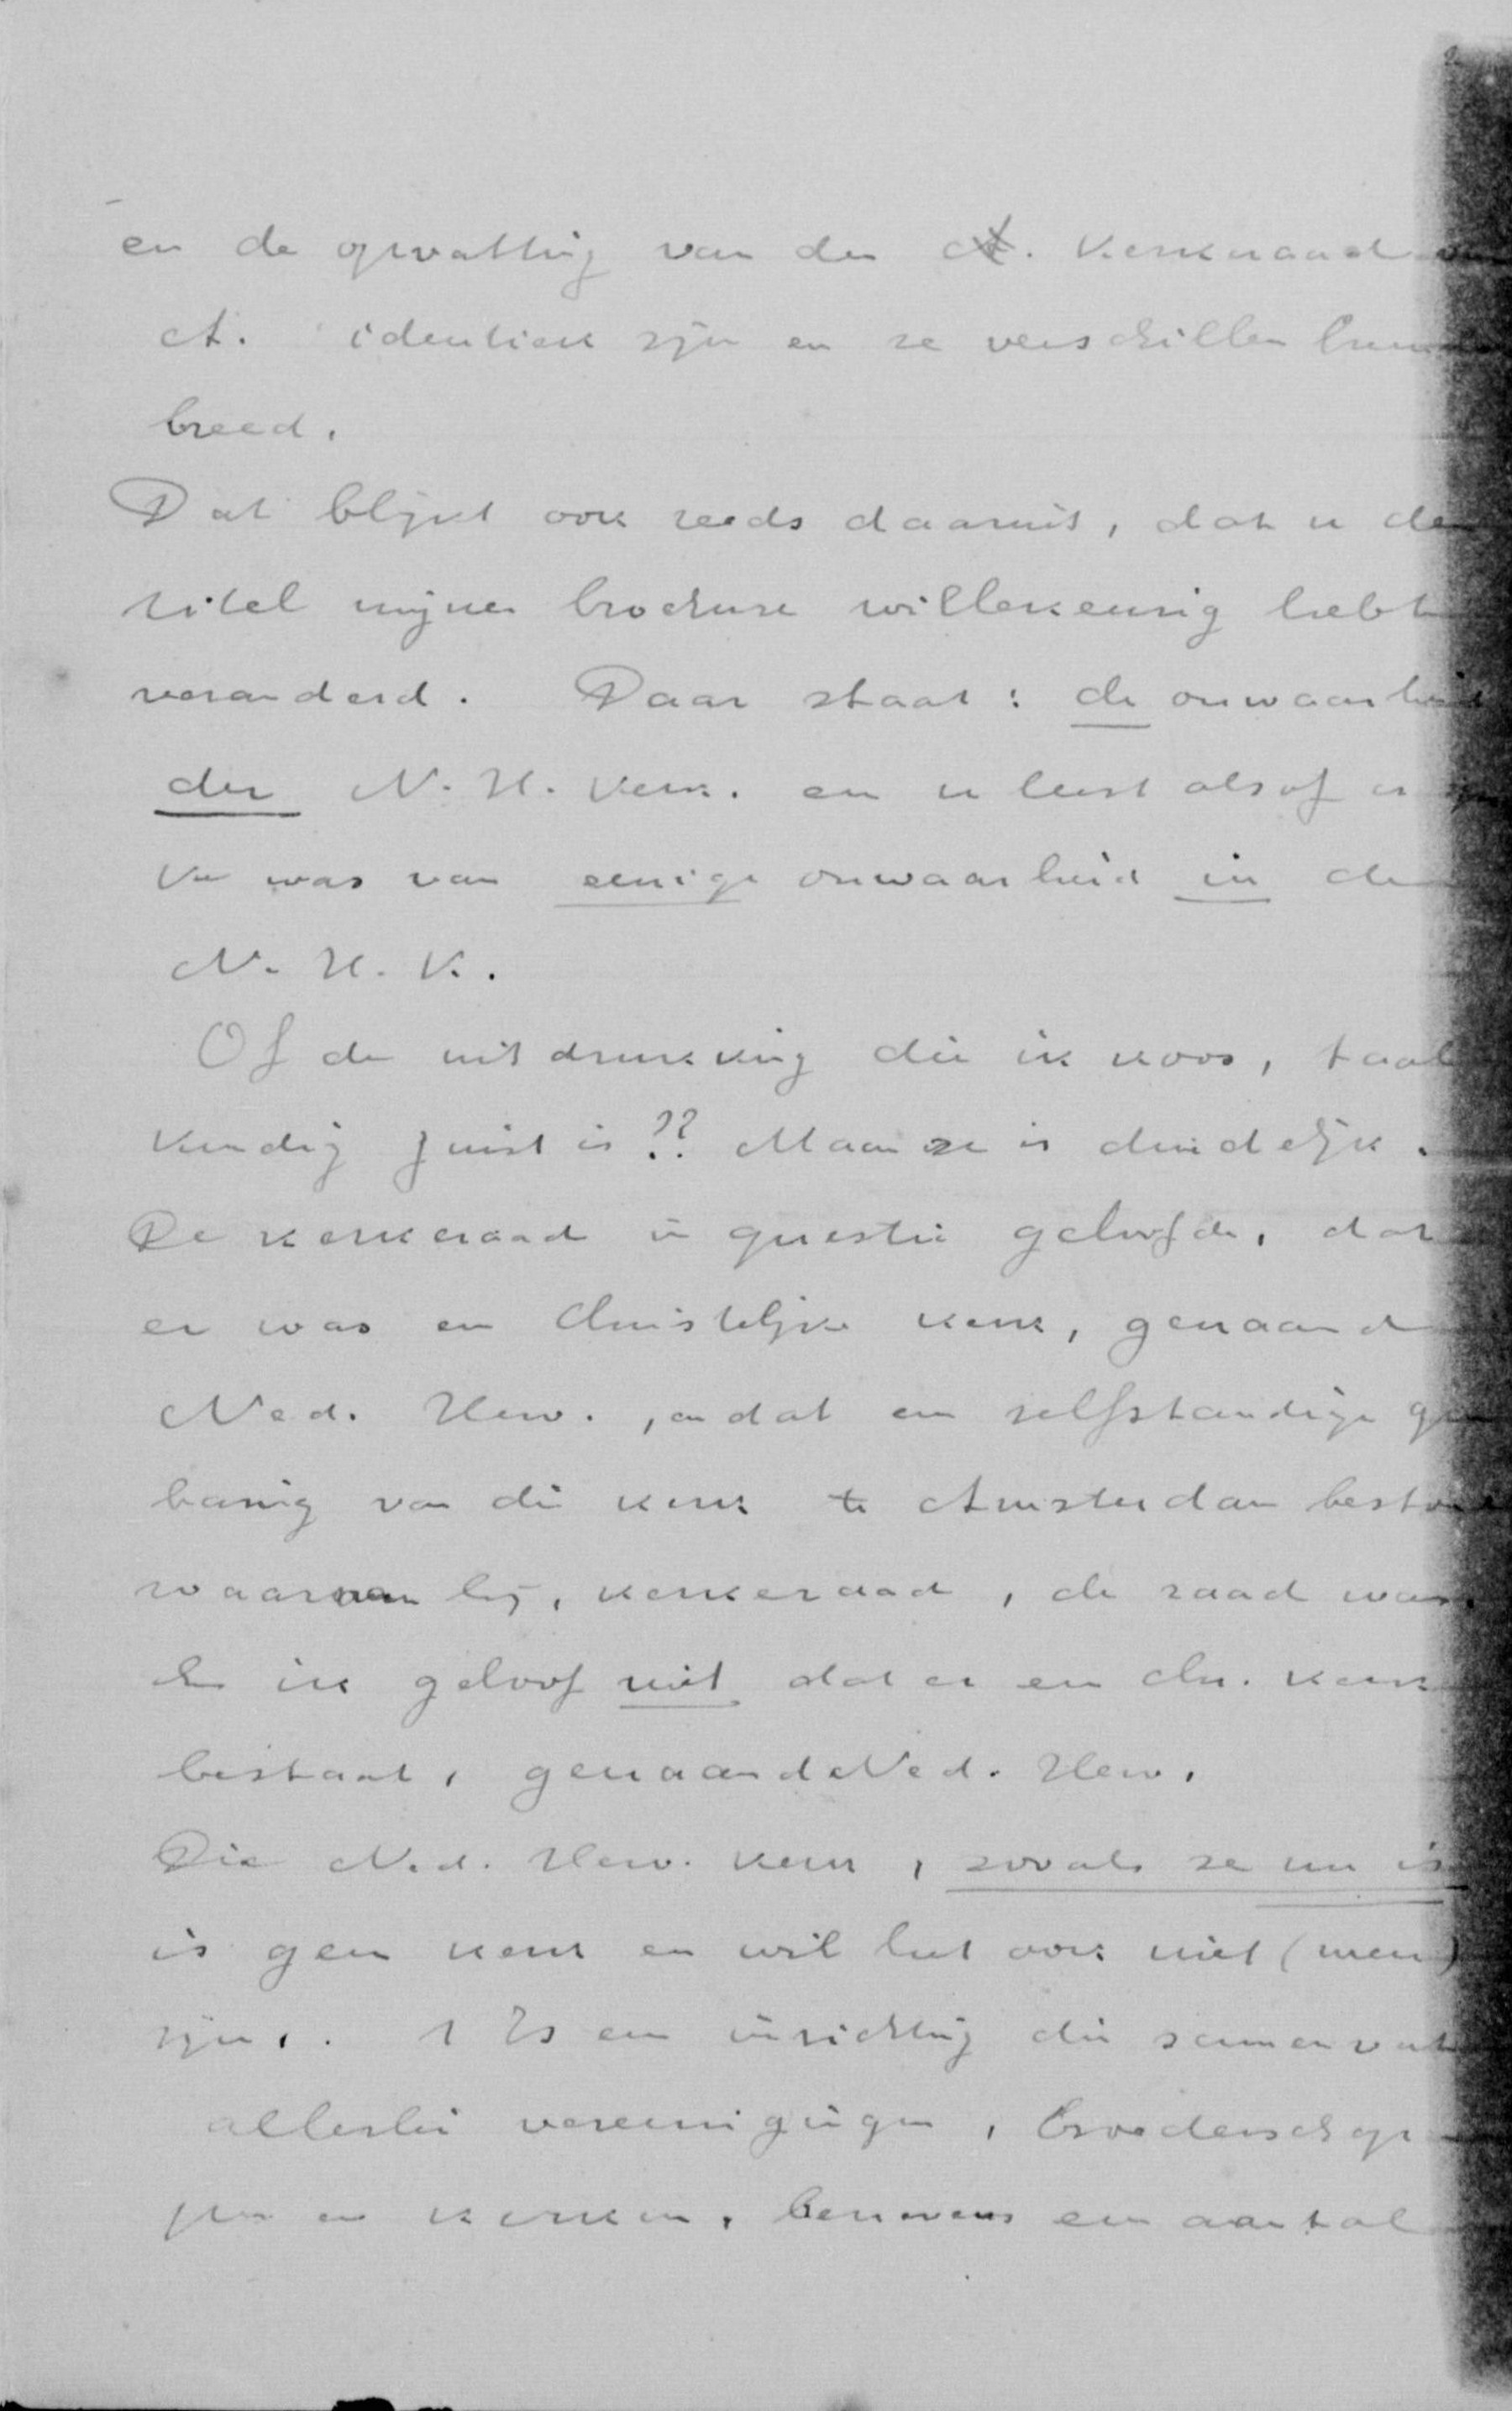 en de opvatting van den A. Kerkeraad
A. identiek zijn en ze verschillen
breed.
Dat blijkt ook reeds daaruit, dat u den
titel mijner brochure willekeurig hebt
veranderd. Daar staat: de onwaarheid
der N. H. Kerk. en u leest alsof er
ke was van eenige onwaarheid in de
N. H. K.
Of de uitdrukking die ik koos, taal
kundig juist is?? Maar ze is duidelijk.
De kerkeraad in questie geloofde, dat
er was een Christelijke kerk, genaamd
Ned. Herv., en dat een zelfstandige
baring van die kerk te Amsterdam bestond
waarvan hij, kerkeraad, de raad was.
En ik geloof niet dat er een chr. kerk
bestaat, genaamd Ned. Herv.
Die Ned. Herv. kerk, zooals ze nu is
is geen kerk en wil het ook niet (meer)
zijn. 't Is een inrichting die samenvat
allerlei vereenigingen, broederschap
pen en kerken, benevens een aantal